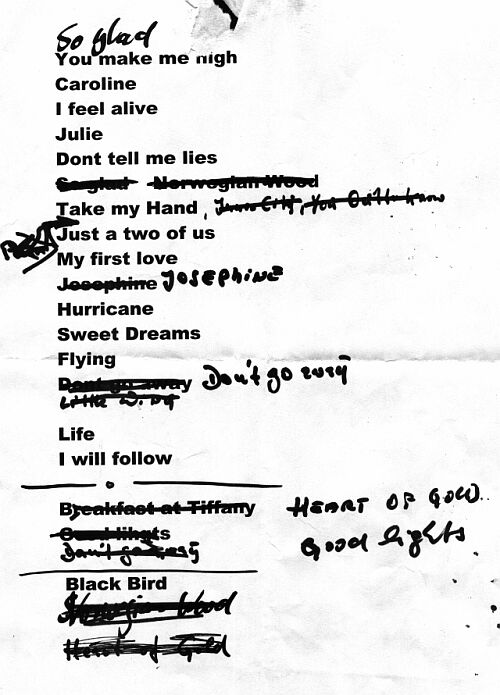 So glad
You make me high
Caroline
I feel alive
Julie
Dont tell me lies
So glad Norwegian Wood
Take my Hand, Inner City, You Oughta know
Just a two of us
My first love
Josephine JOSEPHINE
Hurricane
Sweet Dreams
Flying
Dont go away Don't go away
Little Wing
Life
I will follow
Breakfast at Tiffany HEART OF GOLD
Good lihgts Good lights
Don't go away
Black Bird
Norwegian Wood
Heart of Gold